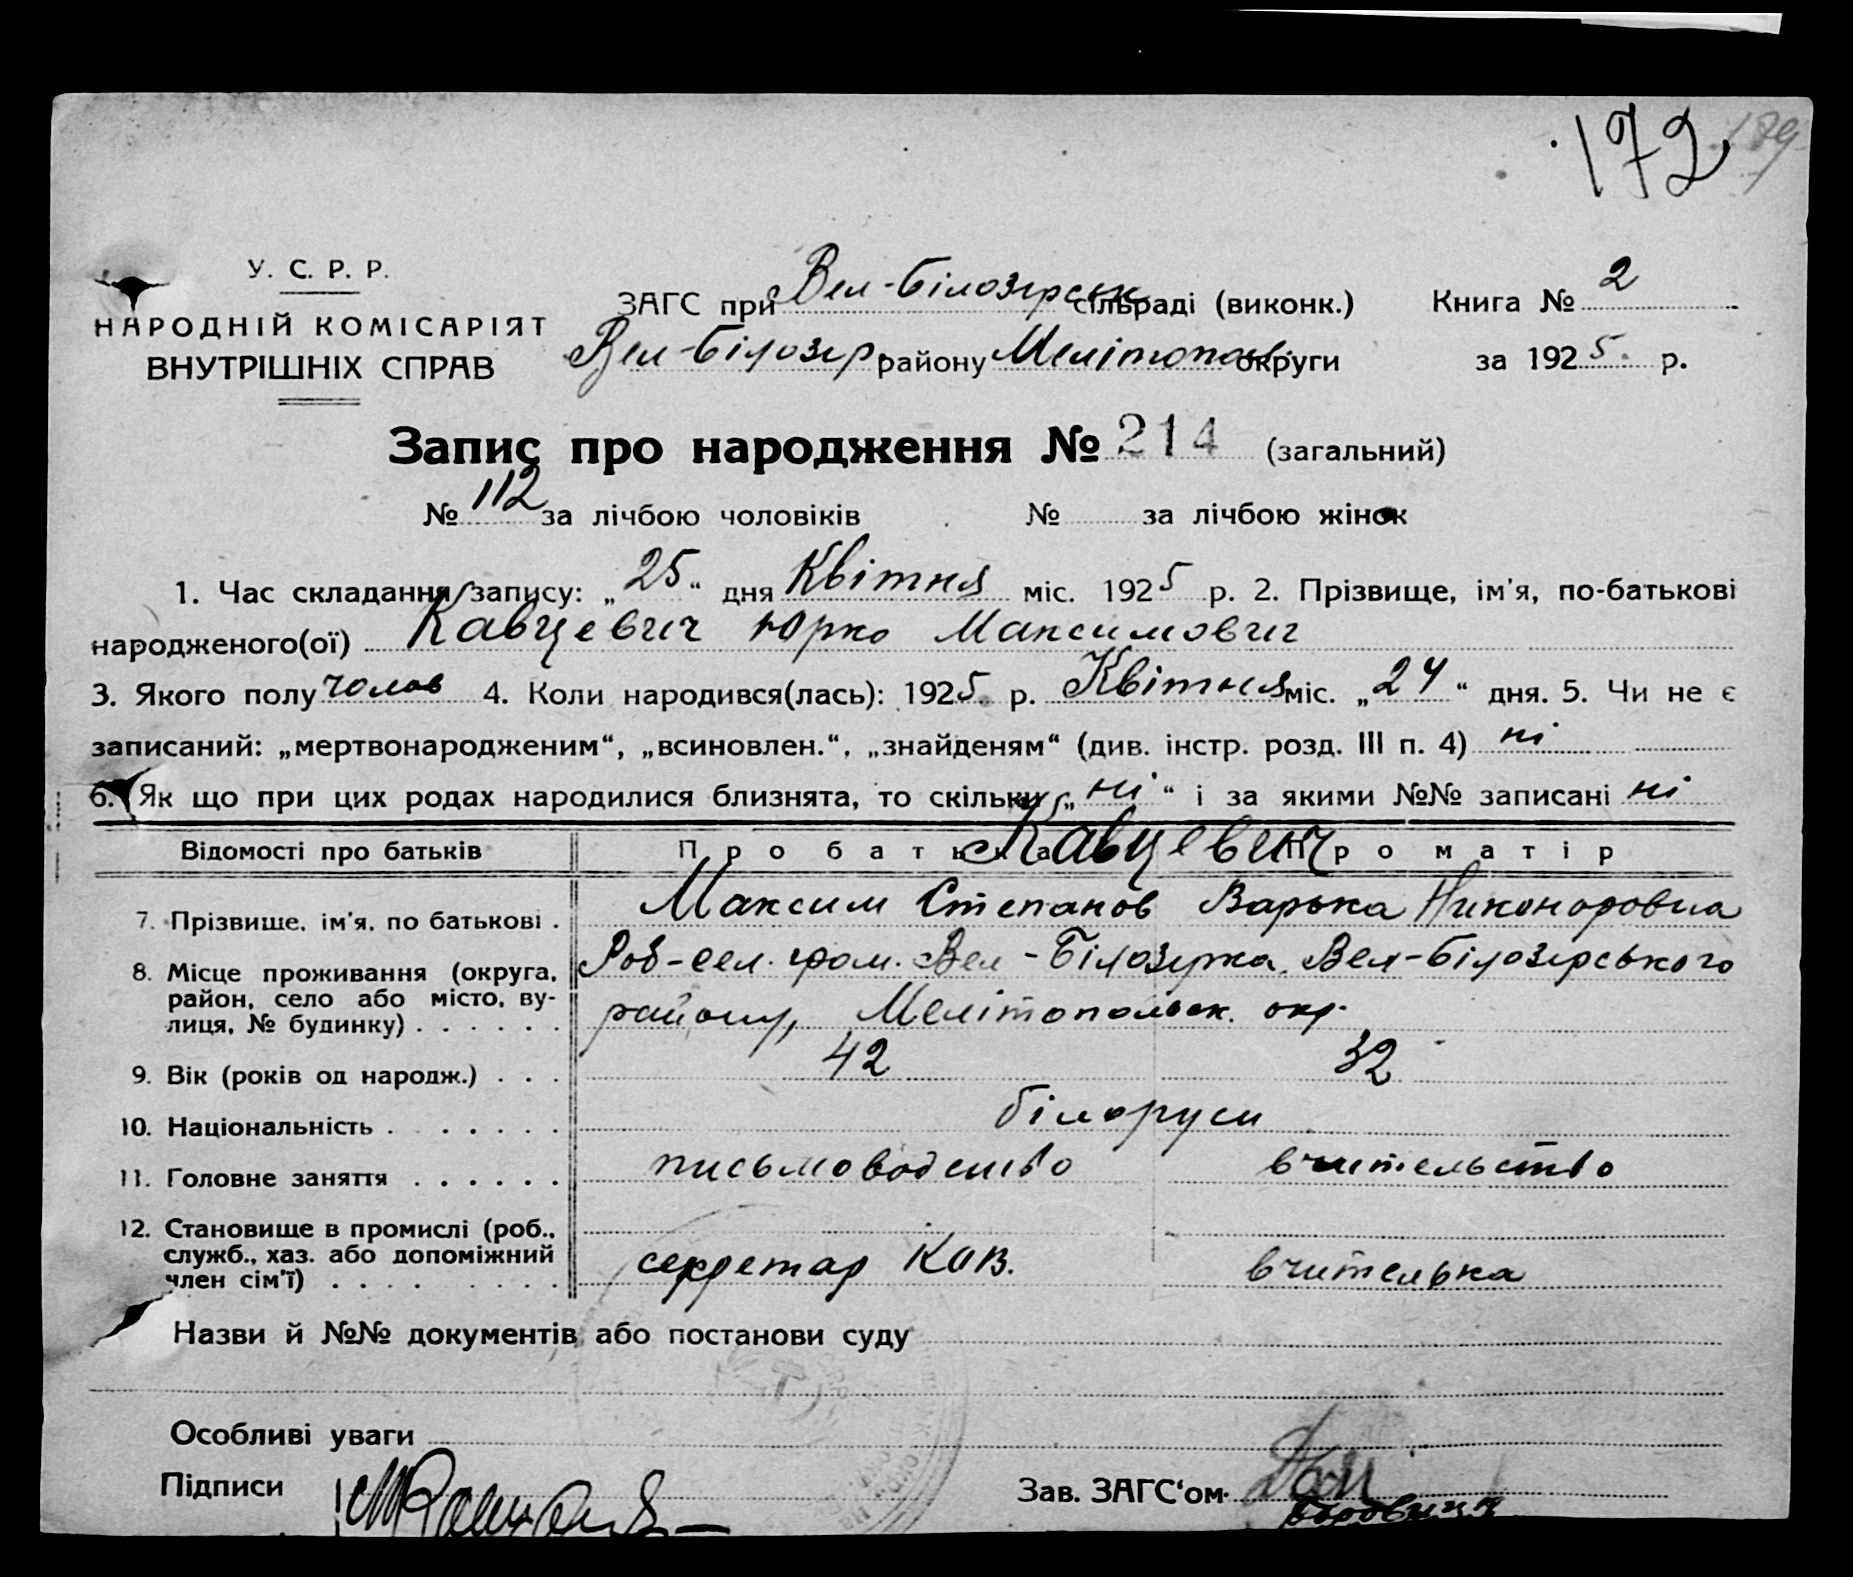 172
У. С. Р. Р.
НАРОДНІЙ КОМІСАРІЯТ
ВНУТРІШНІХ СПРАВ
ЗАГС при Вел-Білозірськ сільраді (виконк.) Книга № 2
Вел-Білозір. району Мелітопол. округи за 1925 р.
Запис про народження № 214 (загальний)
№ 112 за лічбою чоловіків № за лічбою жінок
1. Час складання запису: „25“ дня Квітня міс. 1925 р. 2. Прізвище, ім'я, по-батькові
народженого(ої) Кавцевич Юрко Максимович
3. Якого полу чолов 4. Коли народився(лась): 1925 р. Квітня міс. „24“ дня. 5. Чи не є
записаний: „мертвонародженим“, „всиновлен.“, „знайденям“ (див. інстр. розд. III п. 4) ні
6. Як що при цих родах народилися близнята, то скільки „ні“ і за якими №№ записані ні
Відомості про батьків Про батька Про матір
Кавцевич
7. Прізвище, ім'я, по батькові . Максим Степанов Варька Никоноровна
8. Місце проживання (округа, Роб-сел. гром. Вел-Білозірка, Вел-Білозірського
район, село або місто, ву-
лиця, № будинку) . . . . . . району, Мелітопольськ. окр.
9. Вік (років од народж.) . . . 42 32
10. Національність . . . . . . білоруси
11. Головне заняття . . . . . . письмоводство вчительство
12. Становище в промислі (роб.,
служб., хаз. або допоміжний
член сім'ї) . . . . . . . . . секретар КОВ. вчителька
Назви й №№ документів або постанови суду
Особливі уваги
Підписи Зав. ЗАГС'ом